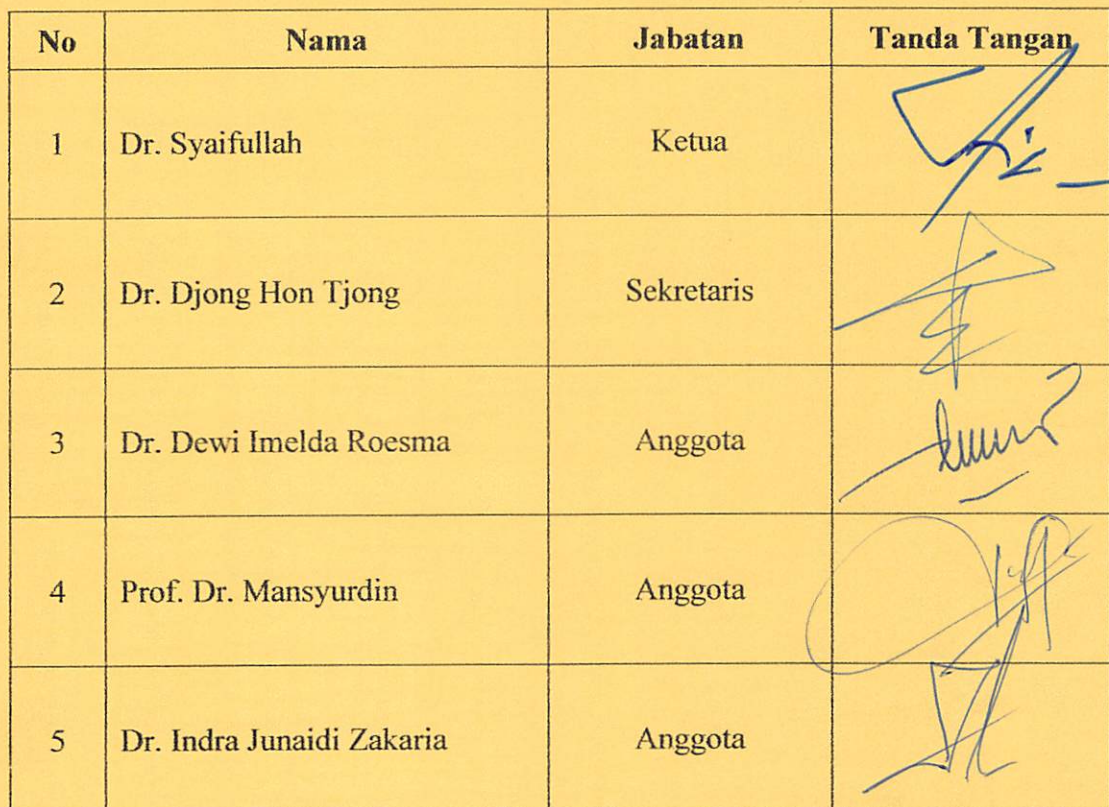 No Nama Jabatan Tanda Tangan
1 Dr. Syaifullah Ketua
2 Dr. Djong Hon Tjong Sekretaris
3 Dr. Dewi Imelda Roesma Anggota
4 Prof. Dr. Mansyurdin Anggota
5 Dr. Indra Junaidi Zakaria Anggota